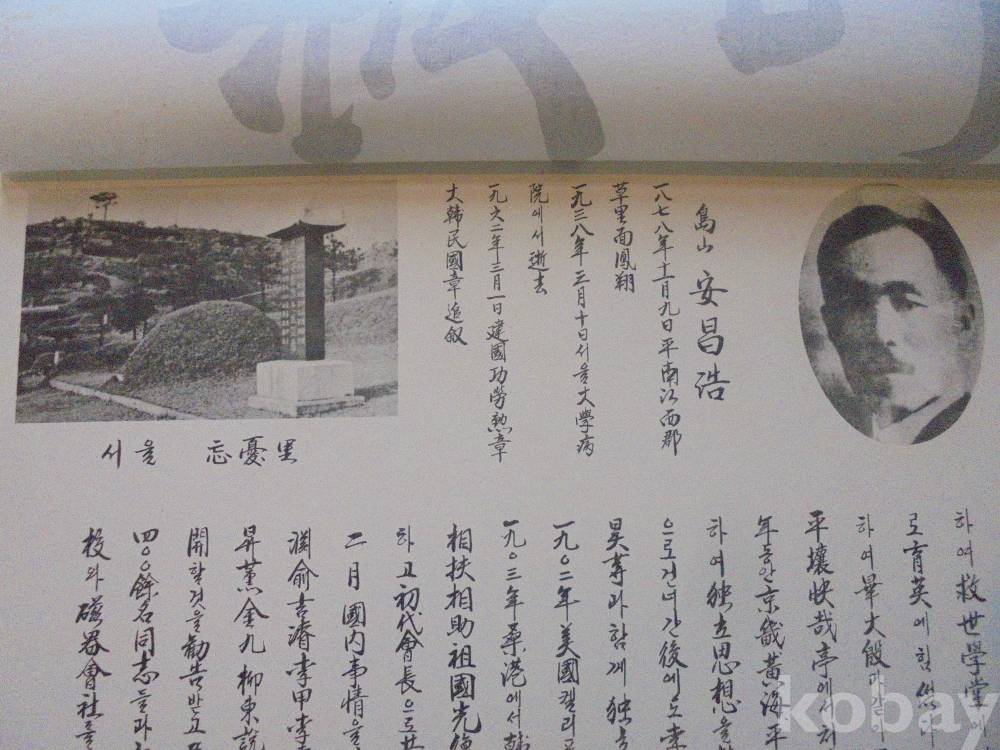 島山 安昌浩
一八七八年十一月九日 平南江西郡
草里面鳳翔
一九三八年 三月十日 서울大學病
院에서 逝去
一九六二年三月一日 建國功勞勲章
大韓民國章追叙
서울 忘憂里
하여 救世學堂에
로 育英에 힘
하여 畢大殷과
平壤快哉亭에서
年동안 京畿黃海平
하여 独立思想을
으로 건너간 後에도 李
昊等과 함께 独
一九〇二年 美國캘리
一九〇三年 桑港에서 韓
相扶相助 祖國光
하고 初代會長으로
二月 國内事情을
渊 俞吉濬 李甲 李
昇薰 金九 柳東說
開할것을 勧告받고
四〇〇餘名同志들과
校와 磁器會社를
kobay